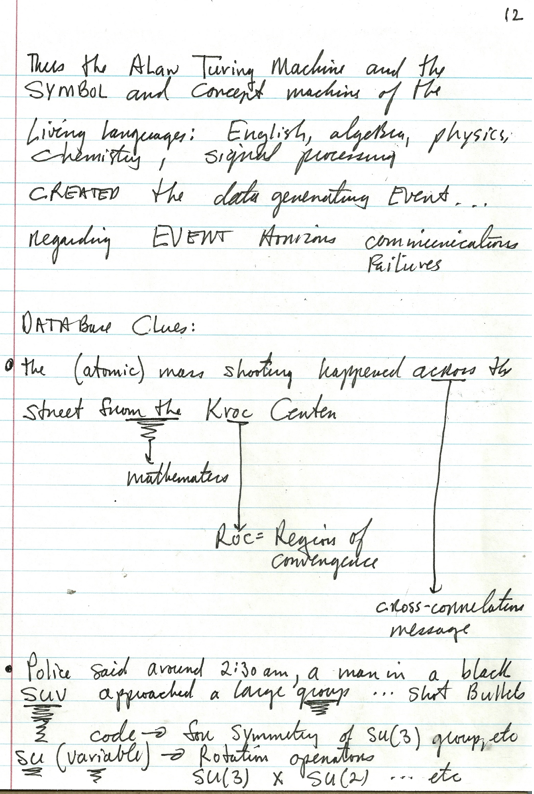 12
Thus the Alan Turing Machine and the
SYMBOL and Concept machine of the
Living languages: English, algebra, physics,
chemistry, signal processing
CREATED the data generating Event...
regarding EVENT Horizons communications
Failures
DATABase Clues:
• the (atomic) mass shooting happened across the
street from the Kroc Center
mathematers
ROC = Region of
convergence
cross-correlation
message
• Police said around 2:30 am, a man in a black
SUV approached a large group ... shot Bullets
code → for symmetry of SU(3) group, etc
SU (variable) → Rotation operations
SU(3) x SU(2) ... etc